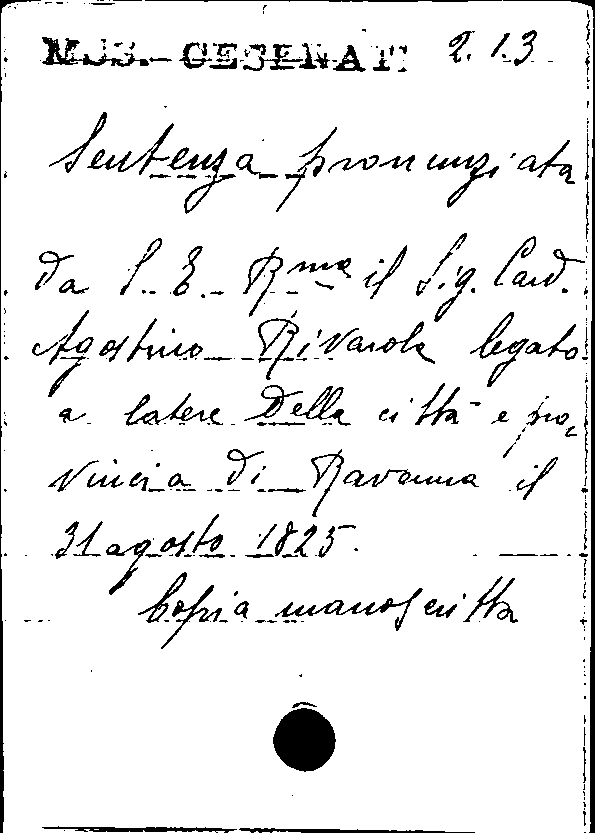 MSS. CESENATI 2.1.3
Sentenza pronunziata
da S. E. Rma il Sig. Card.
Agostino Rivarola legato
a latere della città e pro-
vincia di Ravenna il
31 agosto 1825.
Copia manoscritta